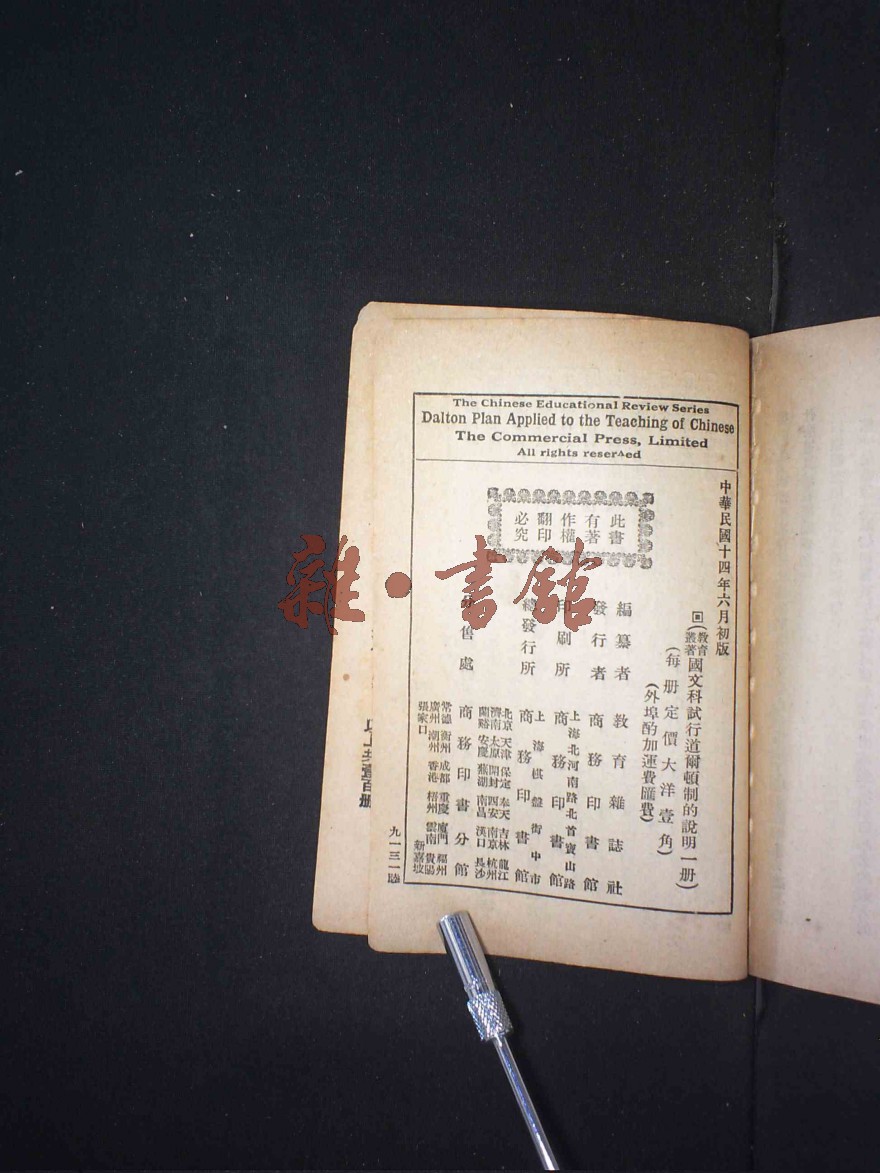 The Chinese Educational Review Series
Dalton Plan Applied to the Teaching of Chinese
The Commercial Press, Limited
All rights reserved
中華民國十四年六月初版
此書
有著
作權
翻印
必究
回(教育叢著國文科試行道爾頓制的說明一册)
(每册定價大洋壹角)
(外埠酌加運費匯費)
編纂者 教育雜誌社
發行者 商務印書館
上海北河南路北首寶山路
印刷所 商務印書館
上海棋盤街中市
總發行所 商務印書館
北京 天津 保定 奉天 吉林 龍江
濟南 太原 開封 西安 南京 杭州
蘭谿 安慶 蕪湖 南昌 漢口 長沙
分售處 商務印書分館
常德 衡州 成都 重慶 廈門 福州
廣州 潮州 香港 梧州 雲南 貴陽
張家口 新嘉坡
九一三一陸
以上共壹百册
雜·書館